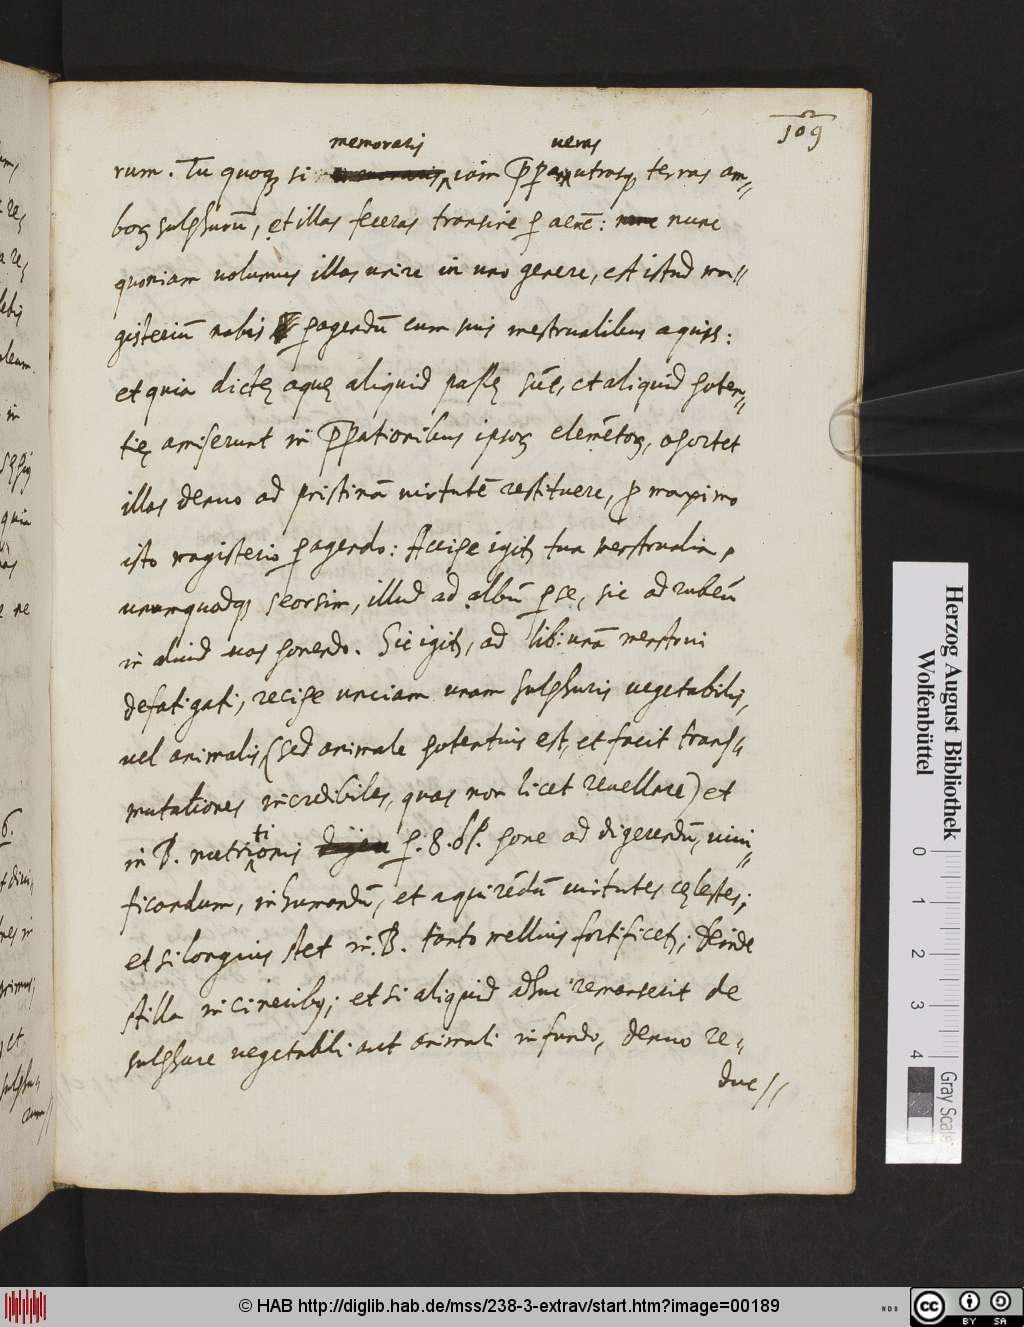 109
memoraris ueras
rum. Tu quoq; si iam ꝑꝑa utrasq; terras am=
boꝝ sulphurũ, et illas feceras transire ꝑ aerẽ: nunc
quoniam uolumus illas unire in uno genere, est istud ma=
gisteriũ nobis ꝑagendũ cum suis mẽstrualibus aquis:
et quia dictę aquę aliquid passę sũt, et aliquid poten=
tię amiserunt in ꝑꝑationibus ipsoꝝ elemẽtoꝝ, oportet
illas denuo ad pristinã uirtutẽ restituere, ꝓ maximo
isto magisterio ꝑagendo: Accipe igit̃ tua menstrualia,
unumquodq; seorsim, illud ad albũ ꝑ se, sic ad rubeũ
in aliud uas ponendo. Sic igit̃, ad lib: unã menstrui
defatigati, recipe unciam unam sulphuris uegetabilis,
uel animalis, (sed animale potentius est, et facit trans=
mutationes incredibiles, quas non licet reuellare) et
in B. nutritionis ꝑ. 8. pone ad digerendũ, uiui=
ficandum, inhumandũ, et aquirẽdũ uirtutes cęlestes;
et si longius stet in B. tanto mellius fortificet̃; deinde
stilla in cineribꝰ; et si aliquid adhuc remanserit de
sulphure uegetabili aut animali in fundo, denuo re=
duc//
Herzog August Bibliothek
Wolfenbüttel
0 1 2 3 4
Gray Scale
© HAB http://diglib.hab.de/mss/238-3-extrav/start.htm?image=00189
cc BY SA